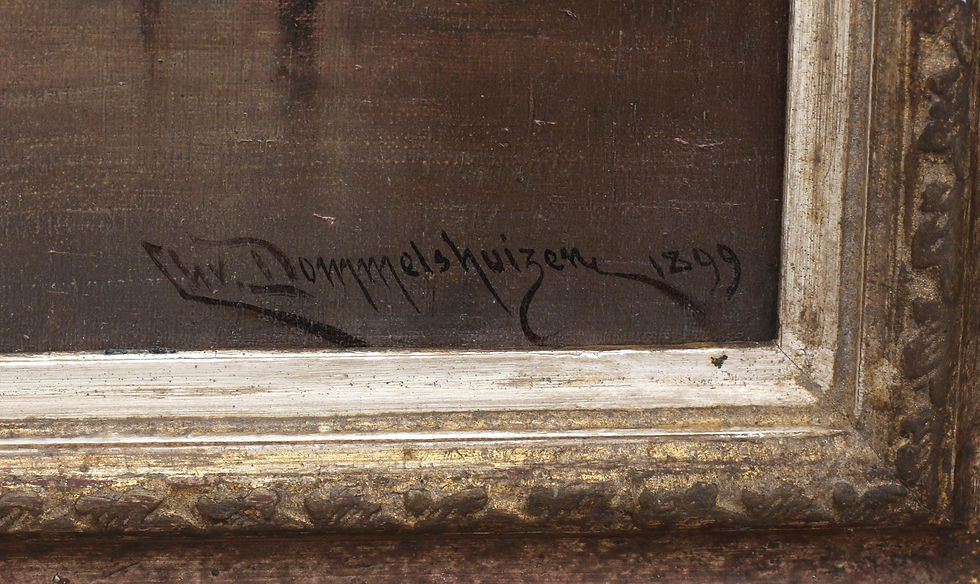 Chr. Dommelshuizen 1899